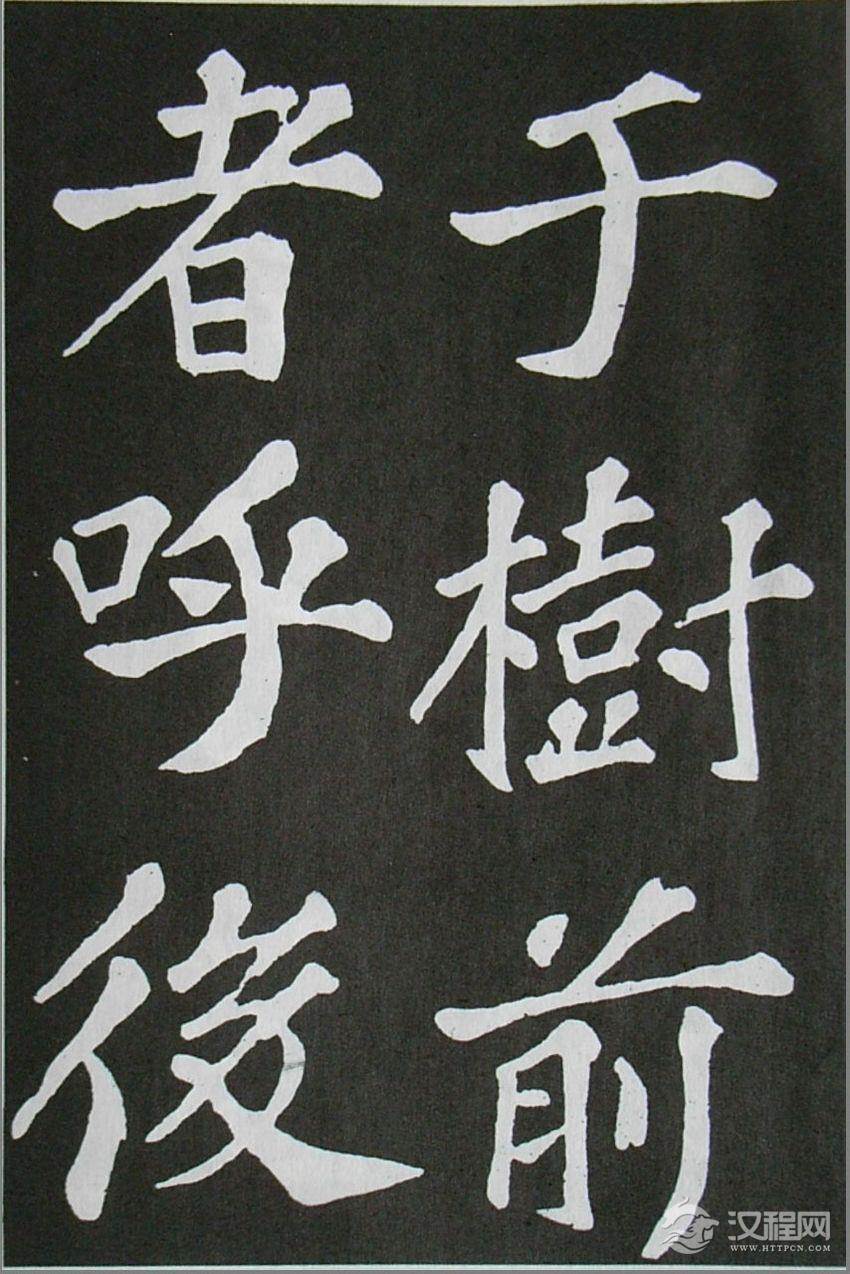 于樹前
者呼後
汉程网
WWW.HTTPCN.COM